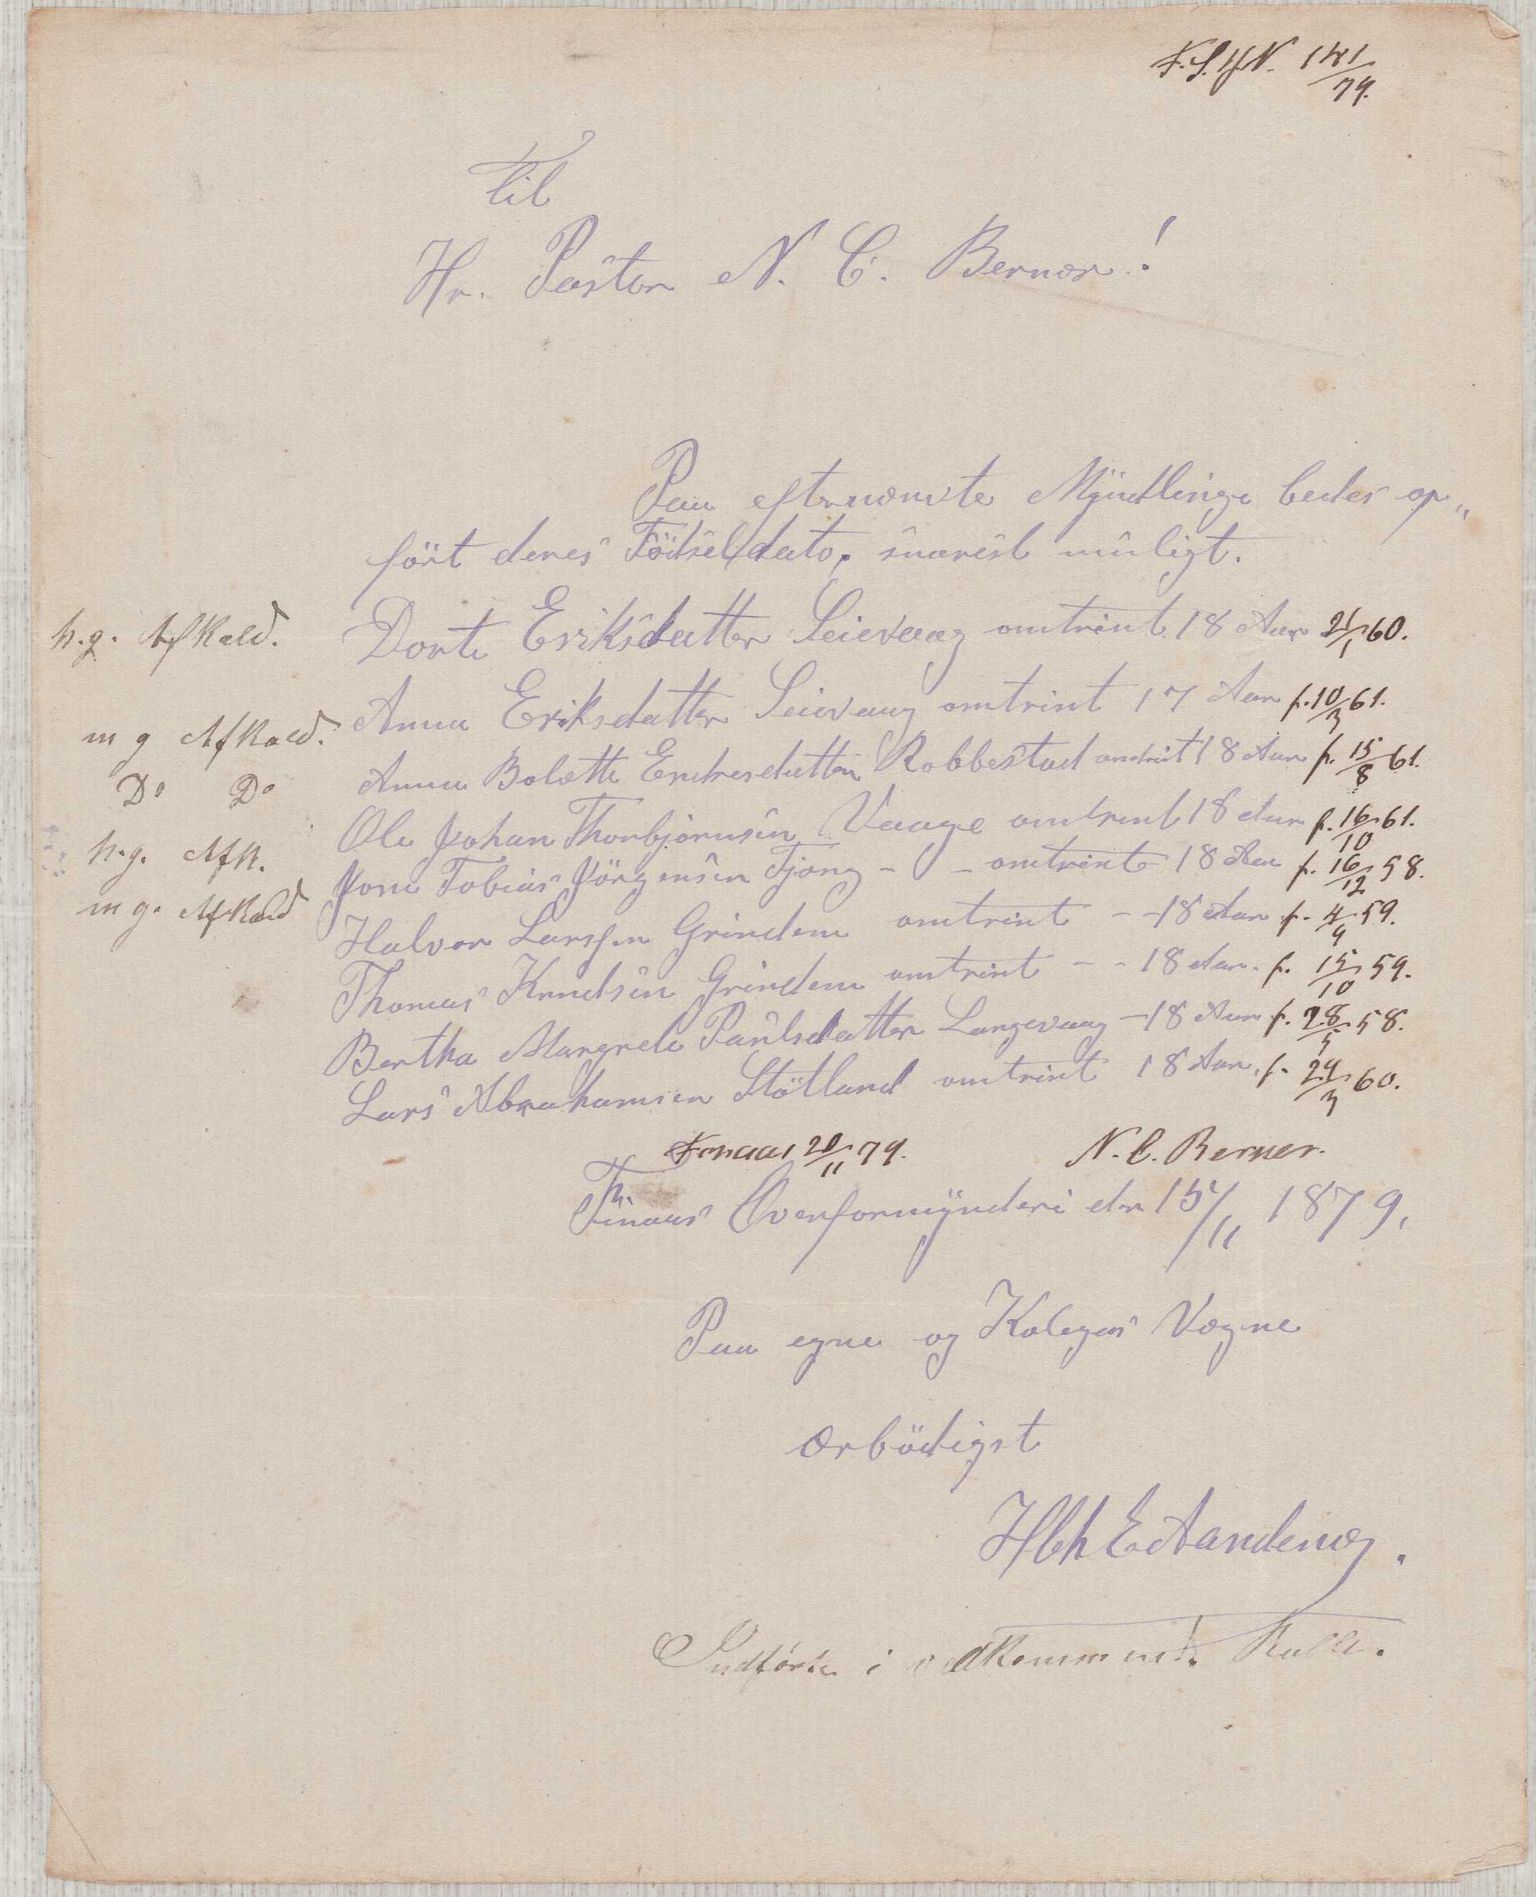 F.S.J.N. 141/79.
Til
Hr. Pastor N. C. Berner!
Paa efternævnte Myndlinge bedes op„
ført deres Fødselsdato, snarest muligt.
Dorte Eriksdatter Leievaag omtrint 18 Aar 21/1 60.
m g Afkald. Anna Eriksdatter Leievaag omtrint 17 Aar f. 10/3 61.
Do Do Anna Bolette Endresdatter Robbestad omtrint 18 Aar f. 15/8 61.
Ole Johan Thorbjørnsen Vaage omtrint 18 Aar f. 16/10 61.
Jone Tobias Jørgensen Fjong - - omtrint 18 Aar f. 16/12 58.
m g. Afkald Halvor Larssen Grindem omtrint - - 18 Aar f. 4/9 59.
Thomas Knudsen Grindem omtrint - - 18 Aar. f. 15/10 59.
Bertha Margrete Paulsdatter Langevaag - 18 Aar f. 28/5 58.
Lars Abrahamsen Støtland omtrint 18 Aar. f. 29/3 60.
Finaas 20/11 79. N. C. Berner.
Finaas Overformynderi den 15/11 1879,
Paa egne og Kolegers Vægne
ærbødigst
Aandenæs.
Indført i vedkommende Rulle.